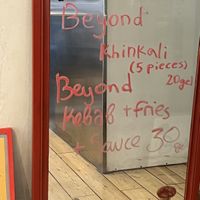 Beyond
Khinkali
(5 pieces)
20gel
Beyond
Kebab + fries
+ Sauce 30